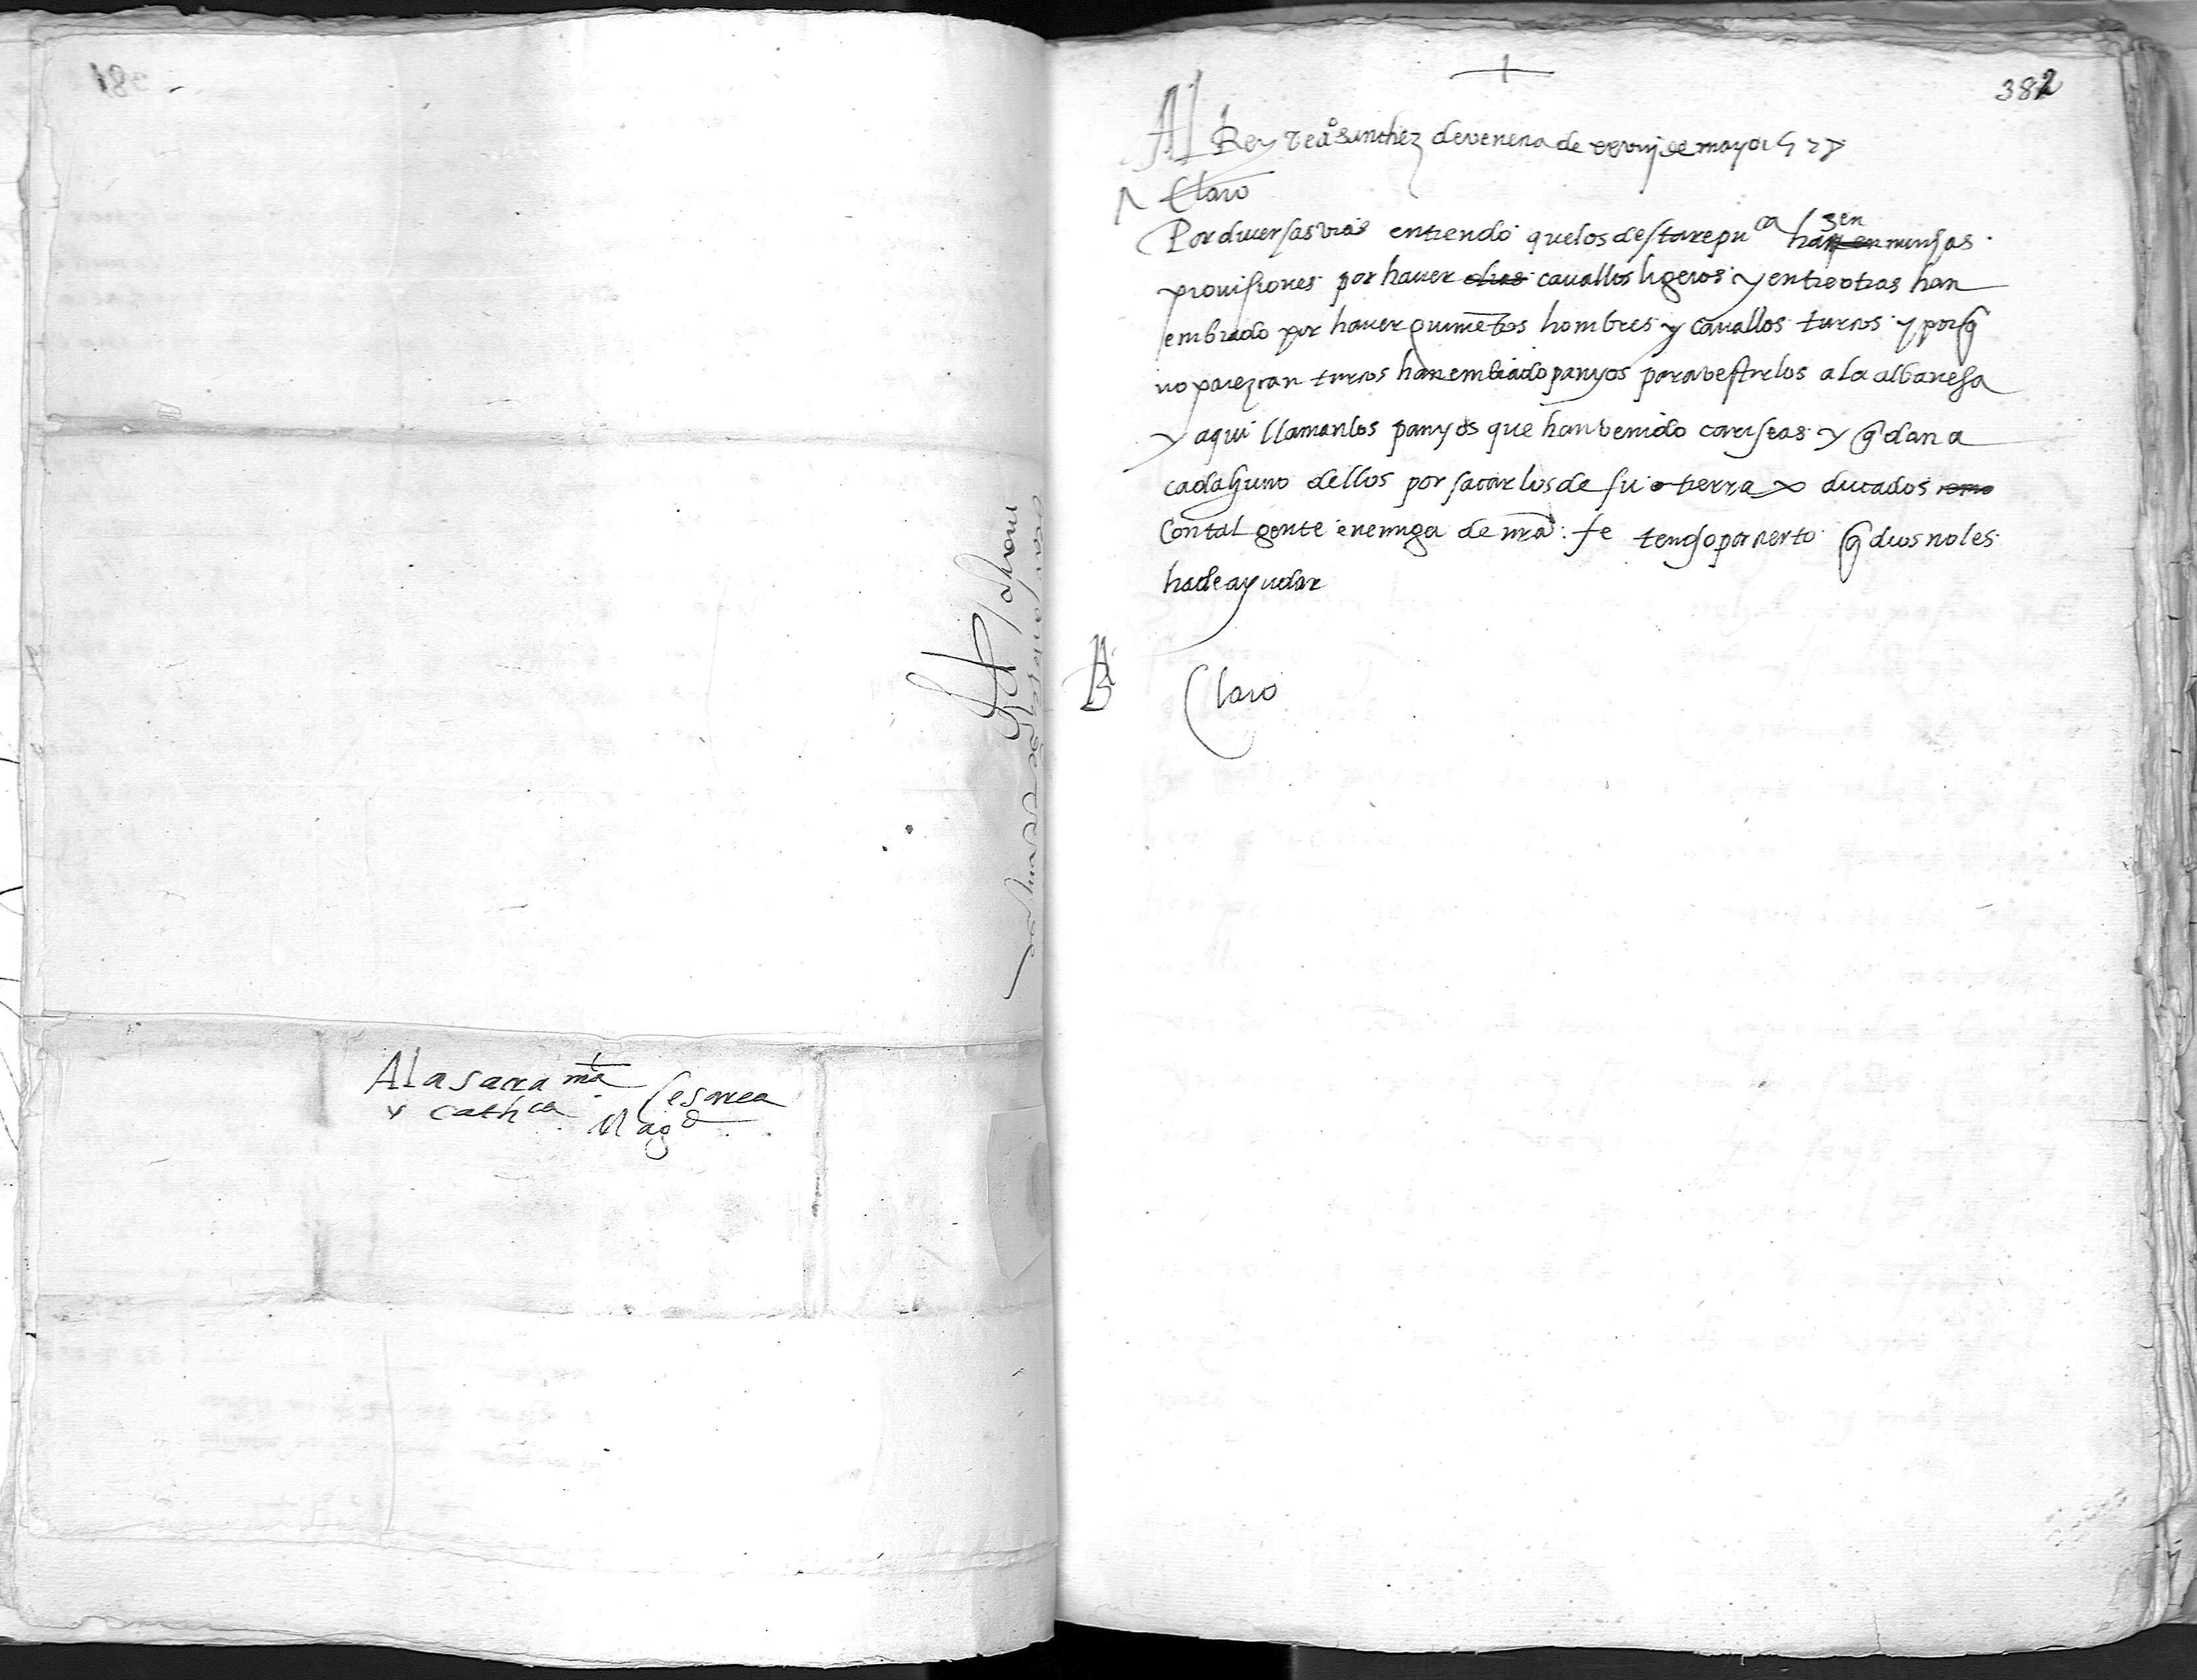 Alasacra mᵃ Cesarea
y cathᶜᵃ. Magᵈ.
382
Al Rey de aº sanchez de venecia de xxviij de mayo
Claro
Por diuersas vias entiendo quelos destarepuᶜᵃ hazen muchas
prouisiones por hauer cauallos ligeros y entreotras han
embiado por hauer quiniẽtos hombres y cauallos turcos y porq̃
no parezcan turcos han embiado panyos para vestirlos ala albanesa
y aqui llamanlos panyos que hanvenido cariseas y q̃ dan a
cadahuno dellos por sacarlos de su tierra x ducados
Contal gente enemiga de nr̃a fe tengo por çierto q̃ dios noles
hade ayudar
Claro